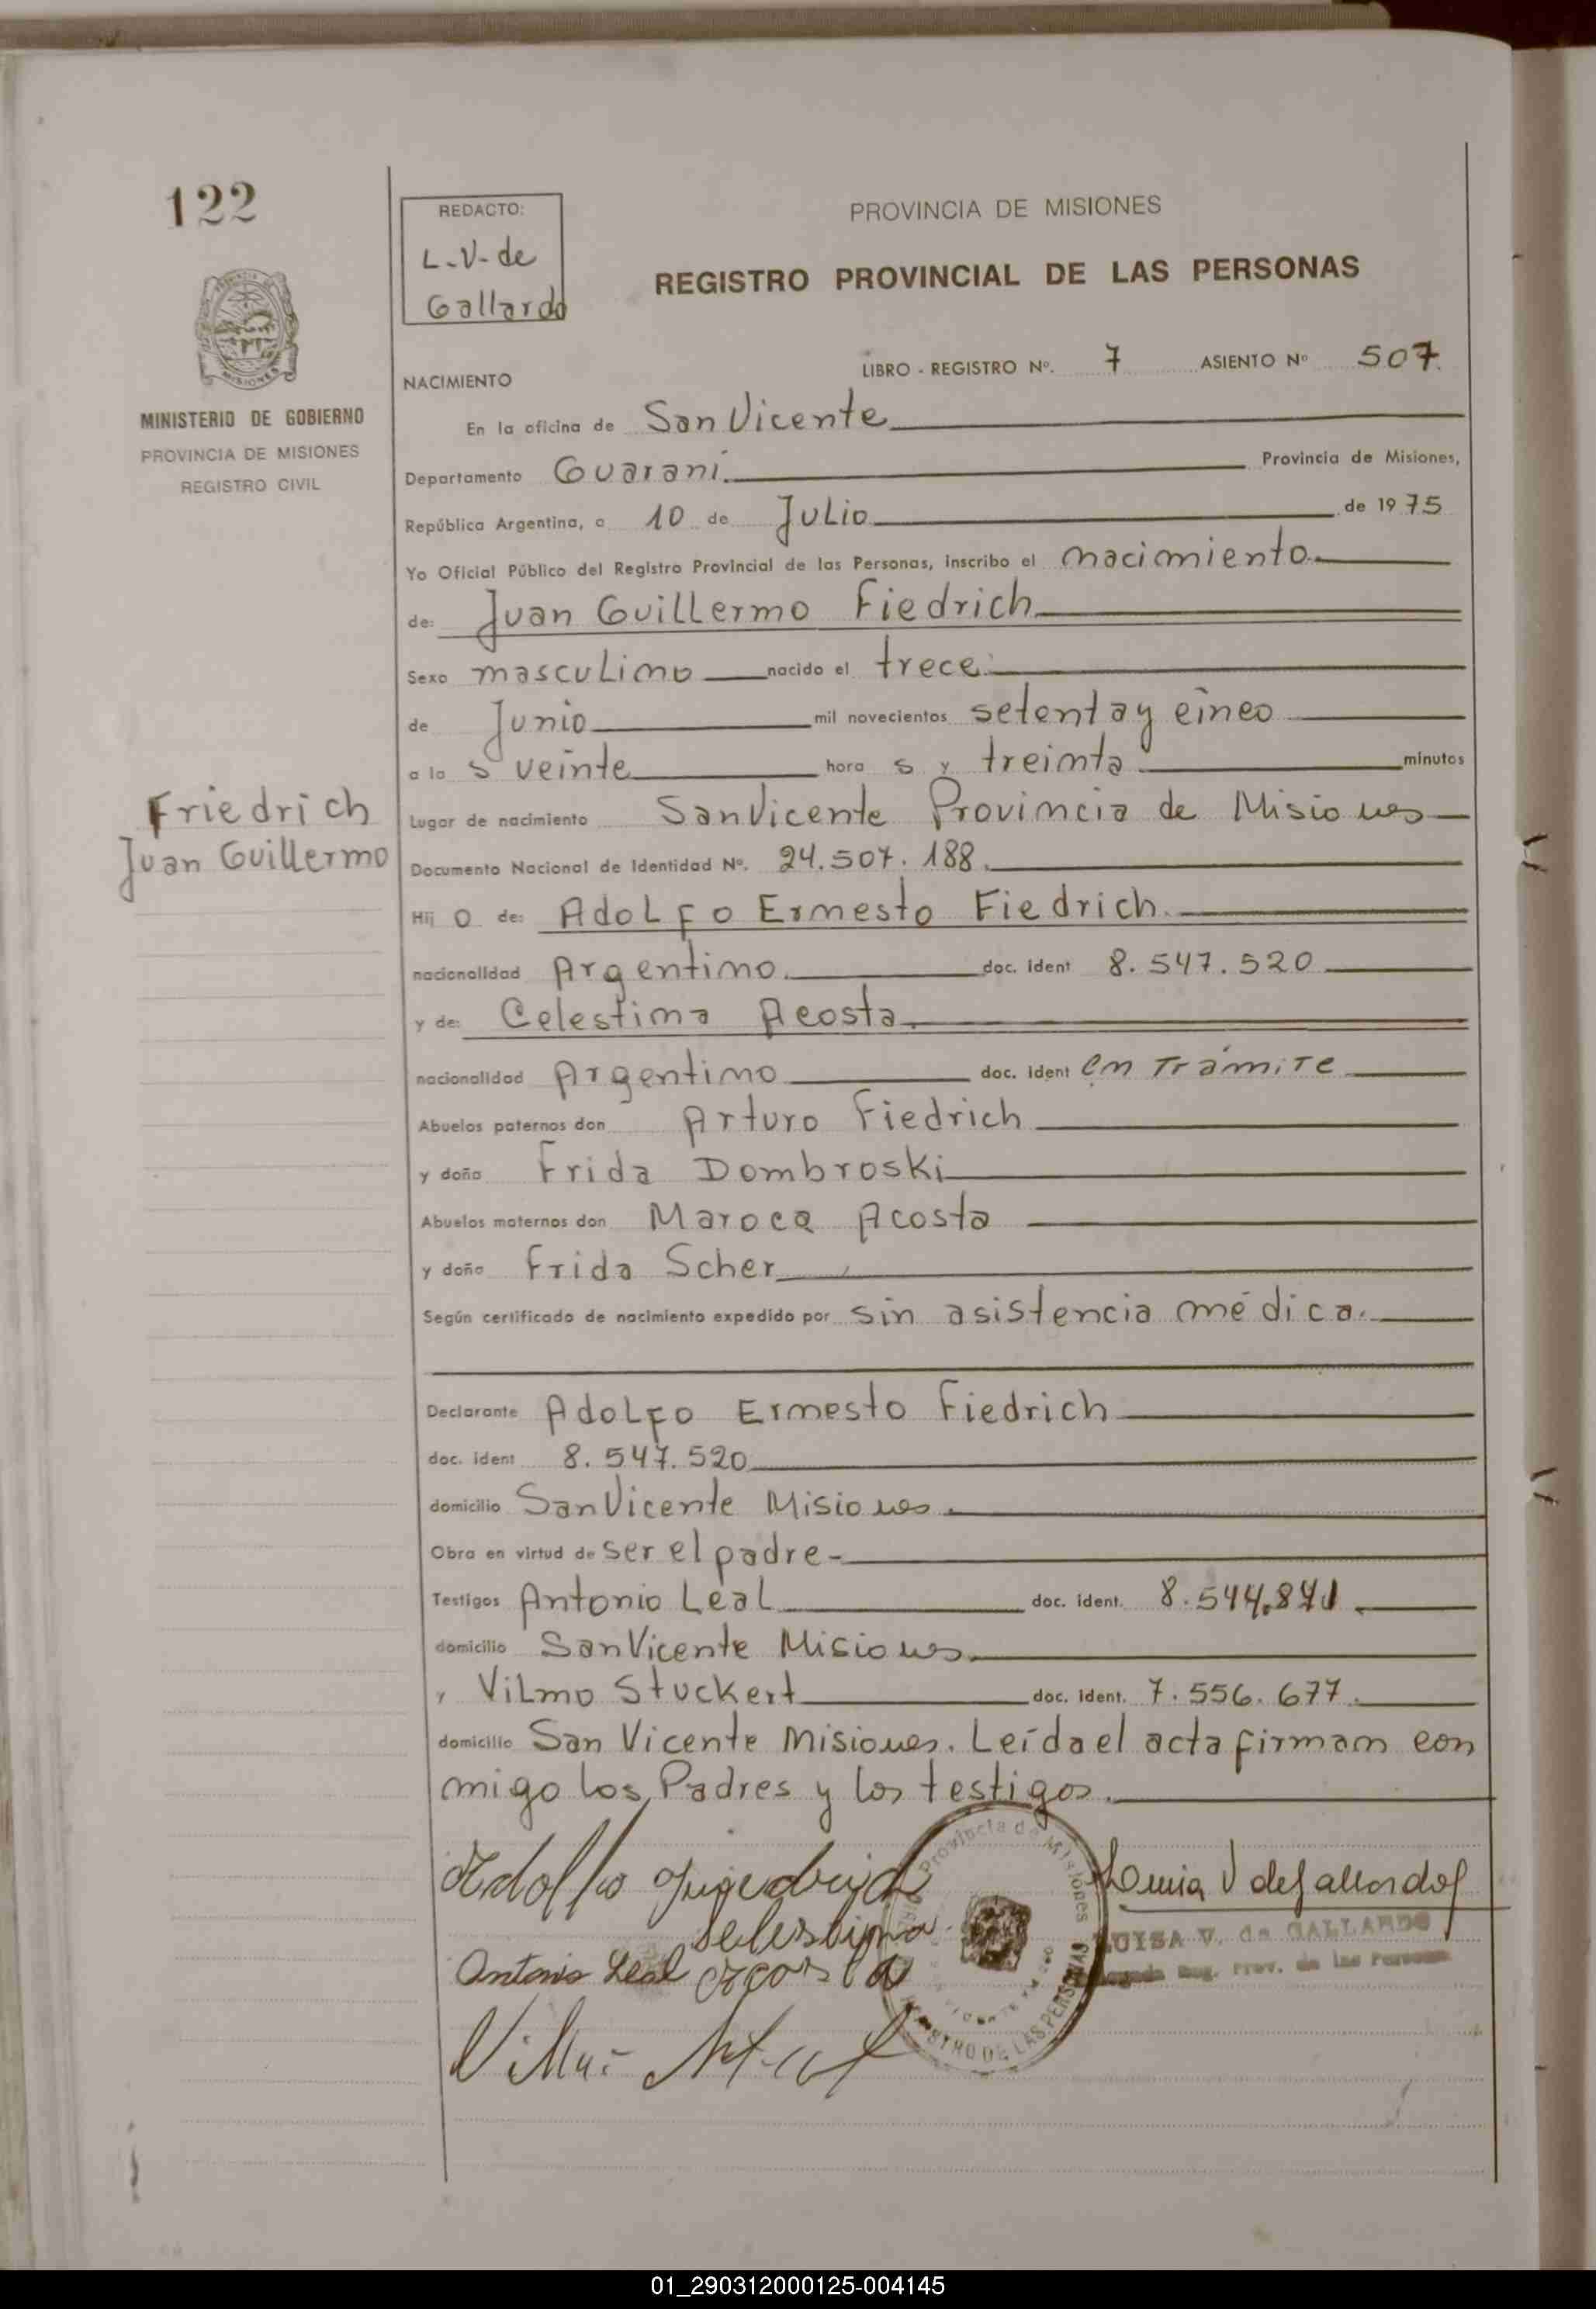 122
REDACTO:
L-V-de
Gallardo
PROVINCIA DE MISIONES
REGISTRO PROVINCIAL DE LAS PERSONAS
MISIONES
MINISTERIO DE GOBIERNO
PROVINCIA DE MISIONES
REGISTRO CIVIL
LIBRO - REGISTRO Nº. 7 ASIENTO Nº 507
NACIMIENTO
En la oficina de San Vicente
Departamento Guaraní Provincia de Misiones,
República Argentina, a 10 de Julio de 1975
Yo Oficial Público del Registro Provincial de las Personas, inscribo el nacimiento
de: Juan Guillermo Fiedrich
Sexo masculino nacido el trece
de Junio mil novecientos setenta y cinco
a la s veinte hora s y treinta minutos
Friedrich
Juan Guillermo
Lugar de nacimiento San Vicente Provincia de Misiones
Documento Nacional de Identidad Nº. 24.507.188.
Hij o de: Adolfo Ernesto Fiedrich
nacionalidad Argentino. doc. ident 8.547.520
y de: Celestina Acosta
nacionalidad Argentino doc. ident en Trámite
Abuelos paternos don Arturo Fiedrich
y doña Frida Dombroski
Abuelos maternos don Maroca Acosta
y doña Frida Scher
Según certificado de nacimiento expedido por sin asistencia médica.
Declarante Adolfo Ernesto Fiedrich
doc. ident 8.547.520
domicilio San Vicente Misiones.
Obra en virtud de ser el padre-
Testigos Antonio Leal doc. ident. 8.544.871.
domicilio San Vicente Misiones.
y Vilmo Stuckert doc. ident. 7.556.677.
domicilio San Vicente Misiones. Leída el acta firman con
migo los Padres y los testigos.
Provincia de Misiones
REGISTRO DE LAS PERSONAS
Antonio Leal
LUISA V. de GALLARDO
Reg. Prov. de las Personas
01_290312000125-004145